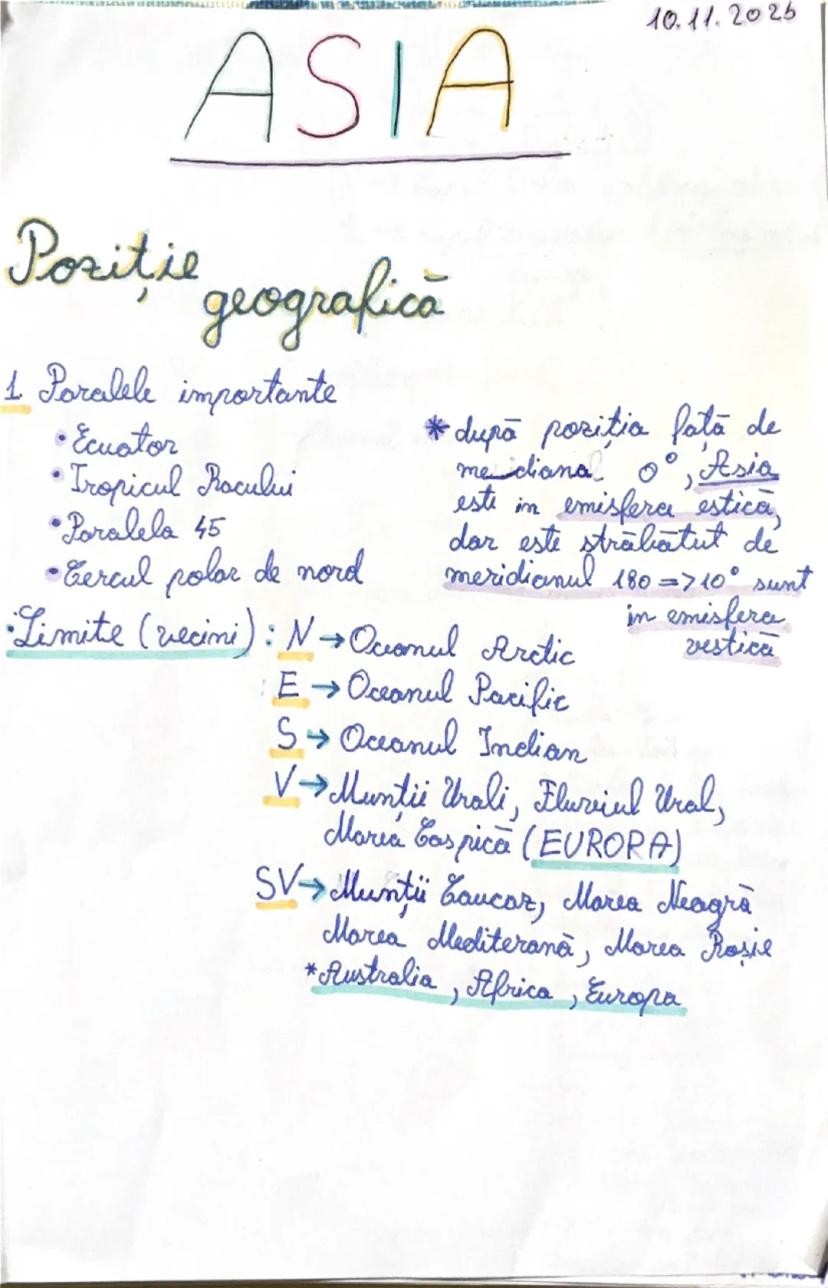 10.11.2025
ASIA
Poziție
geografică
1. Paralele importante
• Ecuator
• Tropicul Racului
• Paralela 45
• Cercul polar de nord
* după poziția față de
meridianul 0°, Asia
este in emisfera estică,
dar este străbătut de
meridianul 180 => 10° sunt
in emisfera
vestică
• Limite (vecini): N → Oceanul Arctic
E → Oceanul Pacific
S → Oceanul Indian
V → Munții Urali, Fluviul Ural,
Marea Caspică (EUROPA)
SV → Munții Caucaz, Marea Neagră
Marea Mediterană, Marea Roșie
* Australia, Africa, Europa